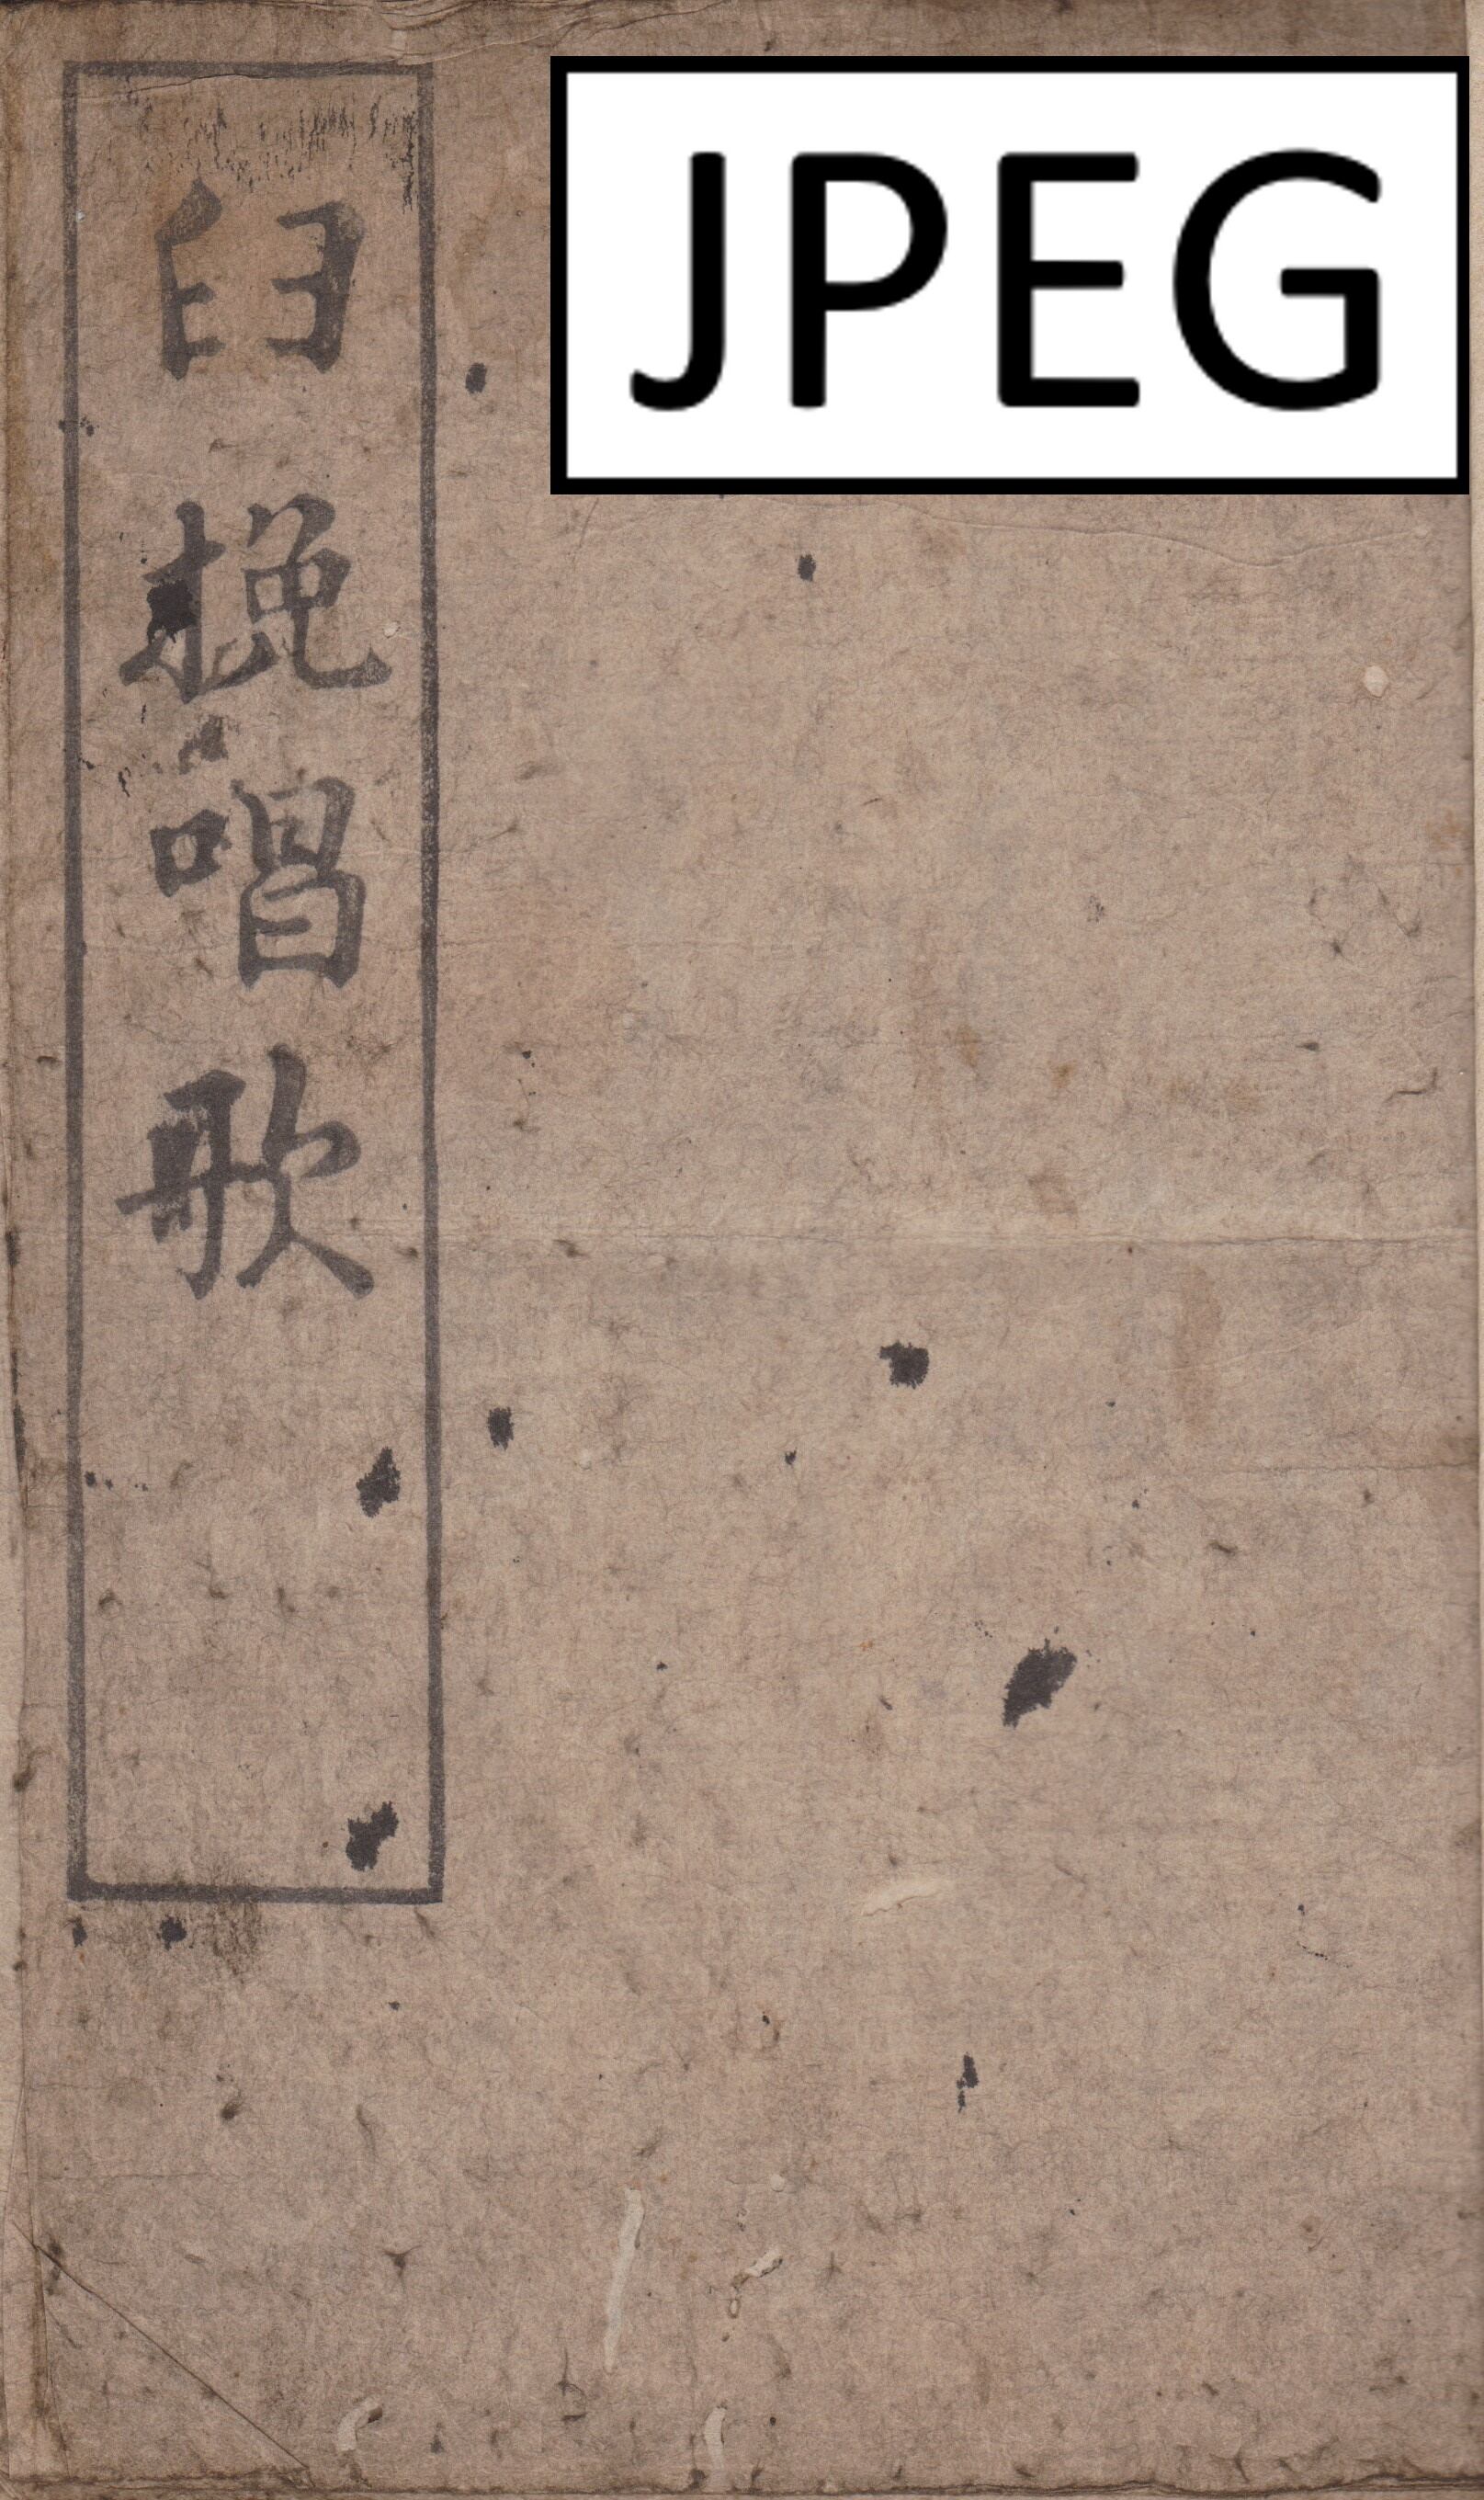 臼挽唱歌
JPEG